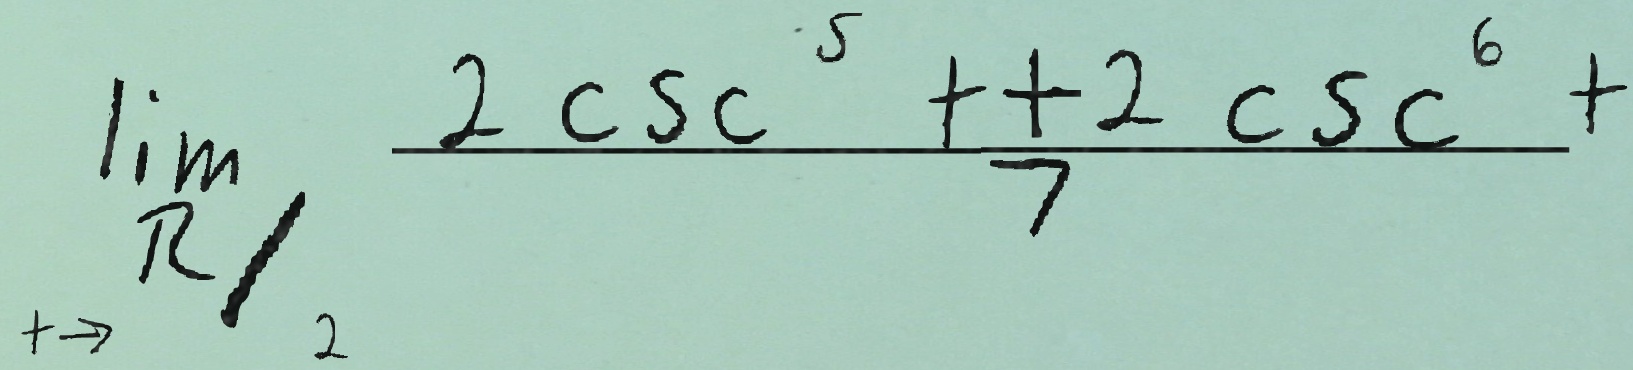 lim t→π/2 (2 csc^5 t + 2 csc^6 t)/7